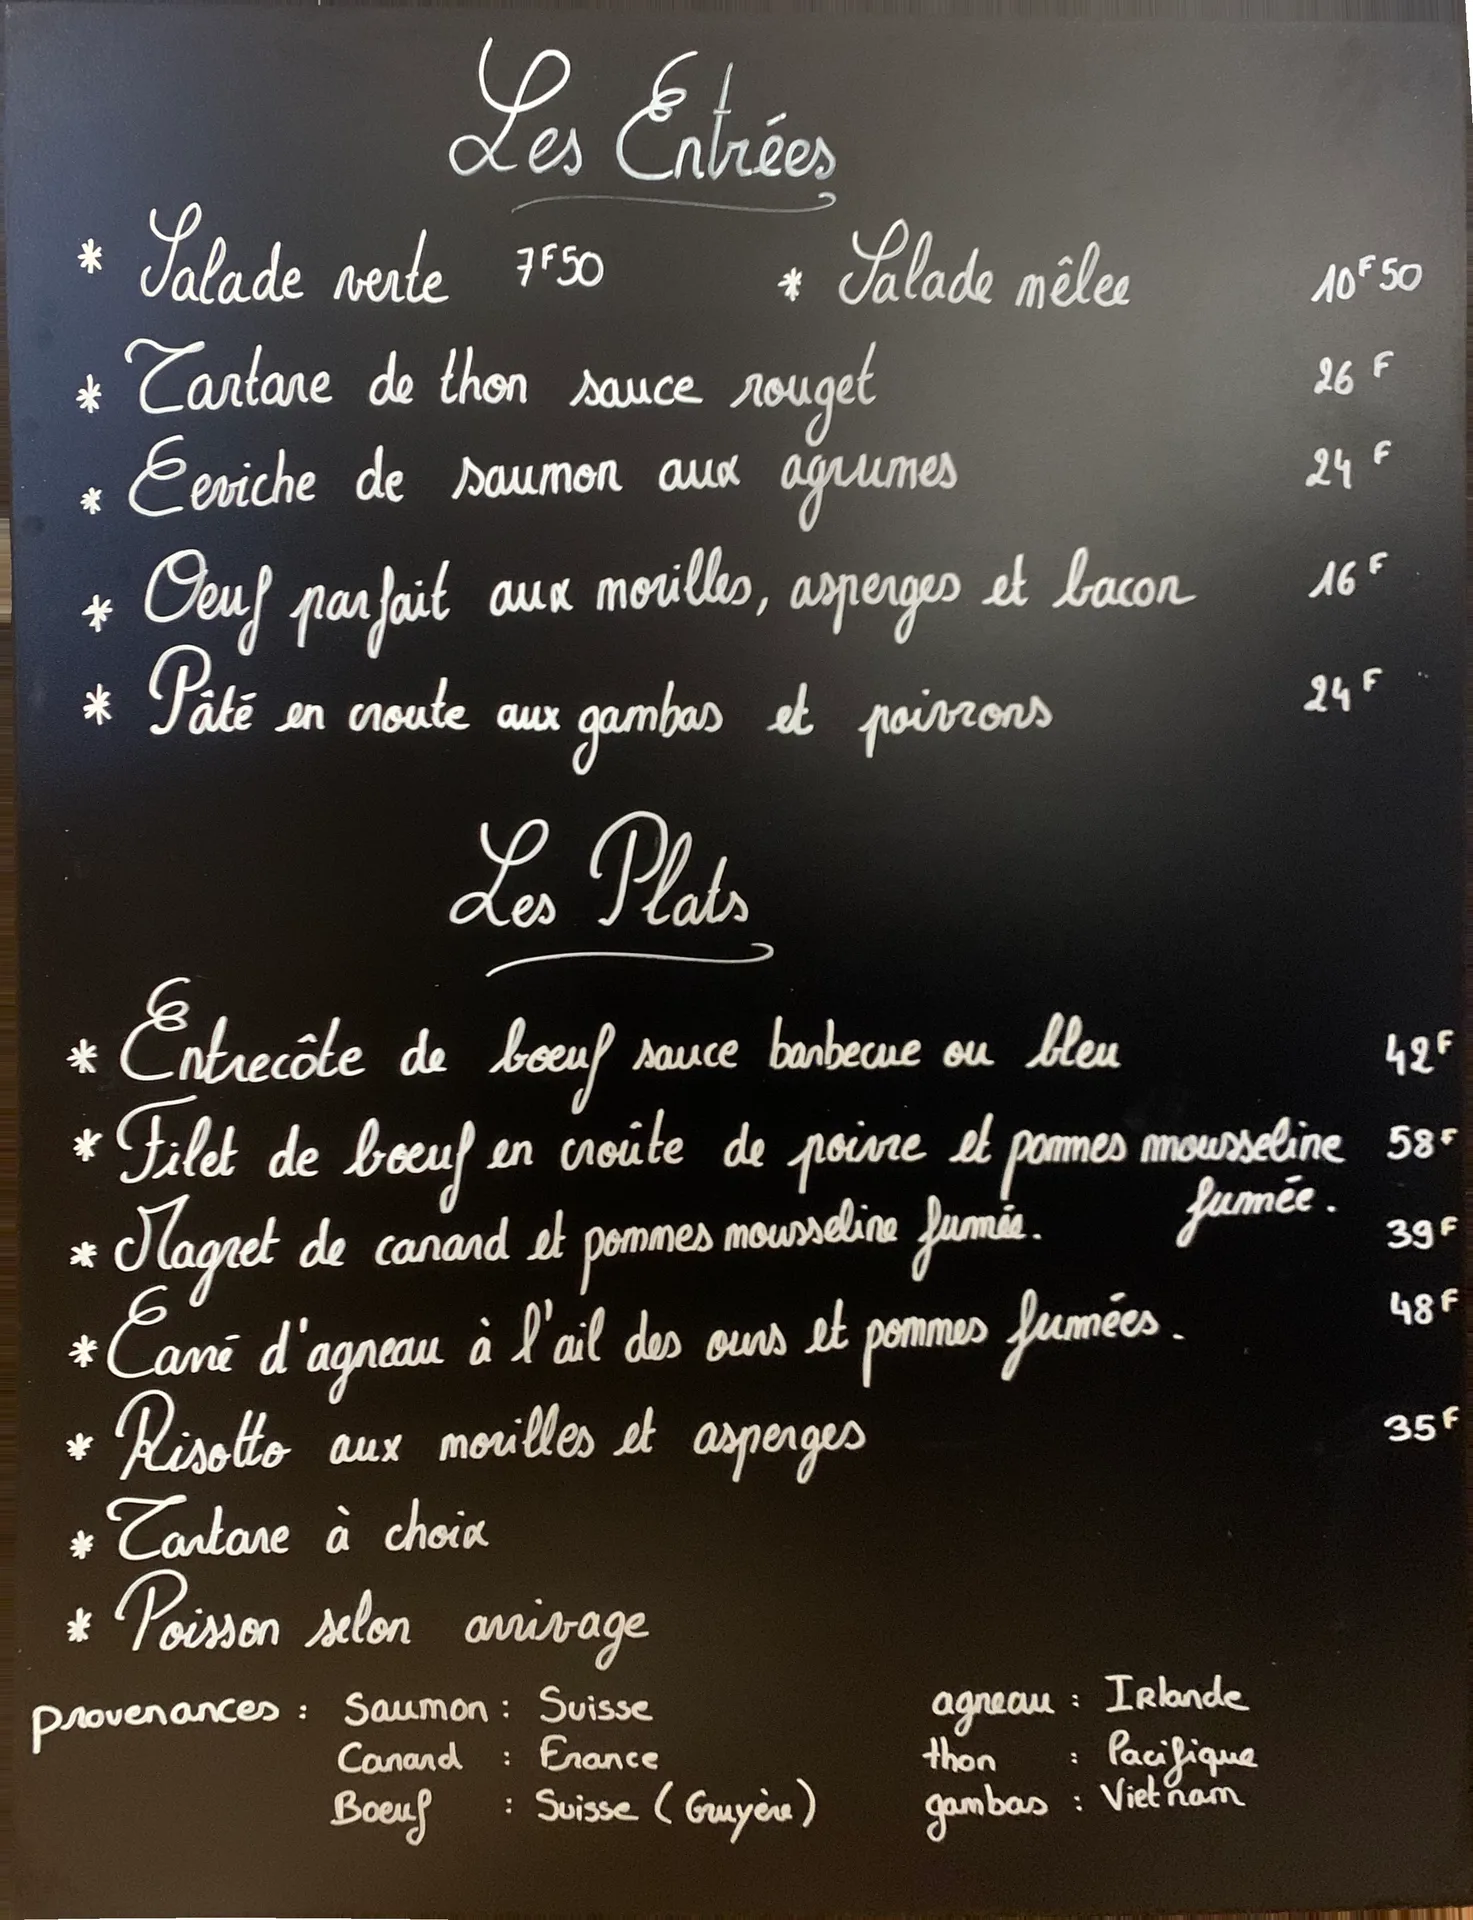 Les Entrées
* Salade verte 7F50 * Salade mêlee 10F50
* Tartare de thon sauce rouget 26 F
* Ceviche de saumon aux agrumes 24 F
* Oeuf parfait aux morilles, asperges et bacon 16 F
* Pâté en croute aux gambas et poivrons 24 F
Les Plats
* Entrecôte de boeuf sauce barbecue ou bleu 42F
* Filet de boeuf en croûte de poivre et pommes mousseline 58F
fumée.
* Magret de canard et pommes mousseline fumée. 39F
* Carré d'agneau à l'ail des ours et pommes fumées. 48F
* Risotto aux morilles et asperges 35F
* Tartare à choix
* Poisson selon arrivage
provenances : Saumon : Suisse agneau : IRlande
Canard : France thon : Pacifique
Boeuf : Suisse (Gruyère) gambas : Viet nam